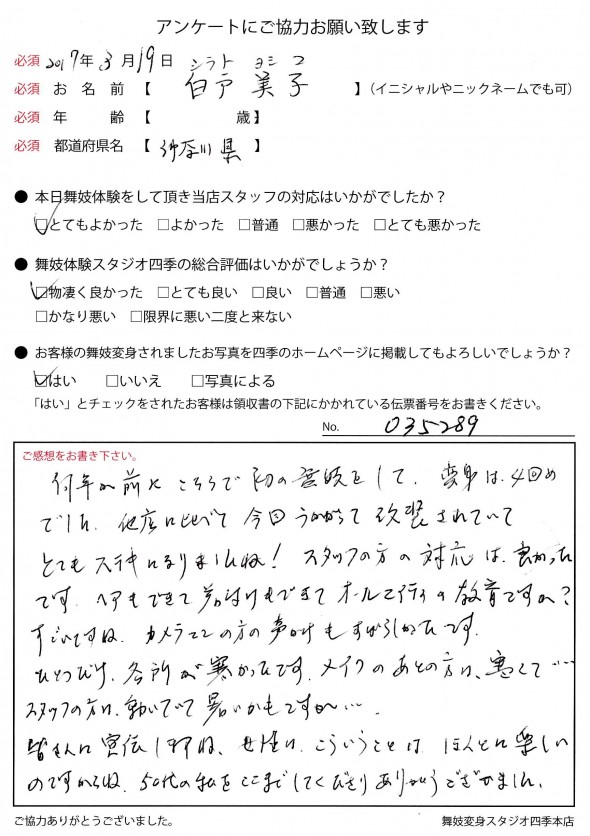 アンケートにご協力お願い致します
必須 2017年3月19日 シラト ヨシコ
必須 お名前【 白戸 美子 】(イニシャルやニックネームでも可)
必須 年齢【 歳】
必須 都道府県名【 神奈川県 】
● 本日舞妓体験をして頂き当店スタッフの対応はいかがでしたか？
☑とてもよかった □よかった □普通 □悪かった □とても悪かった
● 舞妓体験スタジオ四季の総合評価はいかがでしょうか？
☑物凄く良かった □とても良い □良い □普通 □悪い
□かなり悪い □限界に悪い二度と来ない
● お客様の舞妓変身されましたお写真を四季のホームページに掲載してもよろしいでしょうか？
☑はい □いいえ □写真による
「はい」とチェックをされたお客様は領収書の下記にかかれている伝票番号をお書きください。
No. 035289
ご感想をお書き下さい。
何年か前にこちらで初の芸妓をして、変身は、4回め
でした。他店に比べて今回うかがって改装されていて
とてもステキになりましたね！スタッフの方の対応は、良かった
です。ヘアもできて着付けもできてオールマイティの教育ですか？
すごいですね。カメラマンの方の声かけもすばらしかったです。
ひとつだけ、各所が寒かったです。メイクのあとの方は、寒くて…
スタッフの方は、動いていて暑いかもですが…。
皆さんに宣伝しますね、女性は、こういうことは、ほんとに楽しい
のですからね、50代の私をここまでしてくださりありがとうございました。
ご協力ありがとうございました。
舞妓変身スタジオ四季本店